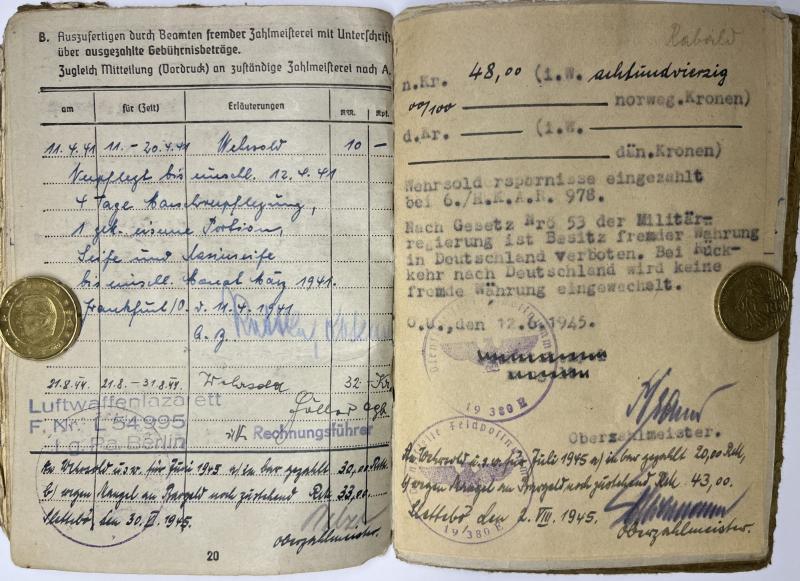 B. Auszufertigen durch Beamten fremder Zahlmeisterei mit Unterschrift
über ausgezahlte Gebührnisbeträge.
Zugleich Mitteilung (Vordruck) an zuständige Zahlmeisterei nach A.
am für (Zeit) Erläuterungen RM. Rpf.
11.4.41 11.–20.4.41 Wehrsold 10 –
Verpflegt bis einschl. 12.4.41
4 Tage Marschverpflegung,
1 gek. eiserne Portion,
Seife und Rasierseife
bis einschl. Monat März 1941.
Frankfurt/O. d. 11.4.1941
21.8.44. 21.8.–31.8.44. Wehrsold 32 Kr.
Luftwaffenlazarett
F. Nr. L 54995
Lg. Pa. Berlin
Rechnungsführer
An Wehrsold usw. für Juli 1945 a) in bar gezahlt 30,00 RM.
b) wegen Mangel an Bargeld noch zustehend RM. 33,00
Slettebö, den 30. 1945.
Oberzahlmeister.
20
Rabald
n.Kr. 48,00 (i.W. achtundvierzig
00/100 norweg.Kronen)
d.Kr. (i.W.
dän.Kronen)
Wehrsoldersparnisse eingezahlt
bei 6./H.K.A.R. 978.
Nach Gesetz Nrö 53 der Militär-
regierung ist Besitz fremder Währung
in Deutschland verboten. Bei Rück-
kehr nach Deutschland wird keine
fremde Währung eingewechselt.
O.U.,den 12.6.1945.
19380 E
Oberzahlmeister.
An Wehrsold usw. für Juli 1945 a) in bar gezahlt 20,00 RM.
b) wegen Mangel an Bargeld noch zustehend RM. 43,00
Slettebö den 2. VIII. 1945.
19380 E
Oberzahlmeister.